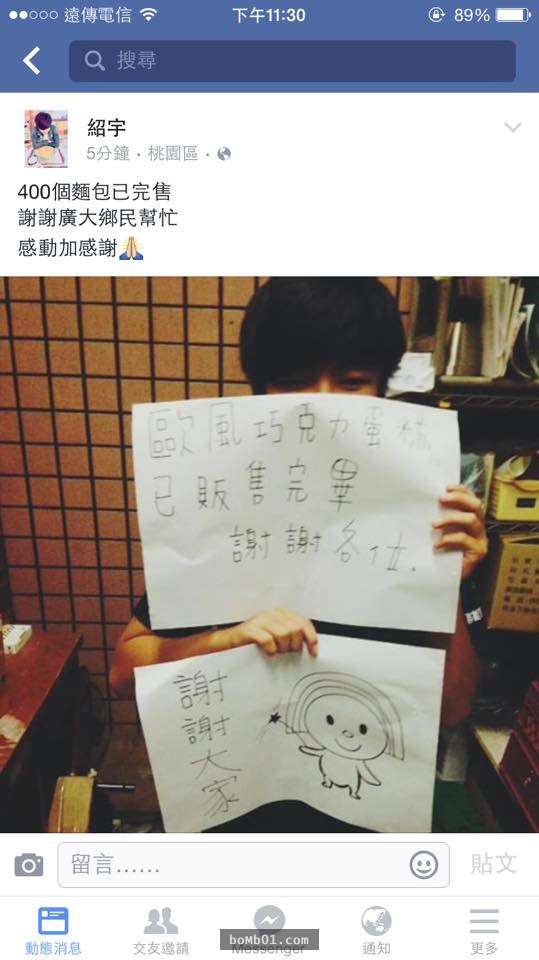 遠傳電信
下午11:30
89%
搜尋
紹宇
5分鐘・桃園區・
400個麵包已完售
謝謝廣大鄉民幫忙
感動加感謝🙏
歐風巧克力蛋糕
已販售完畢
謝謝各位.
謝謝大家
留言......
貼文
動態消息
交友邀請
Messenger
通知
更多
boMb01.com